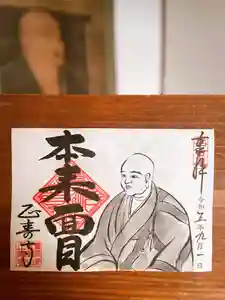 奉拝
令和五年九月一日
本来面目
正寿寺